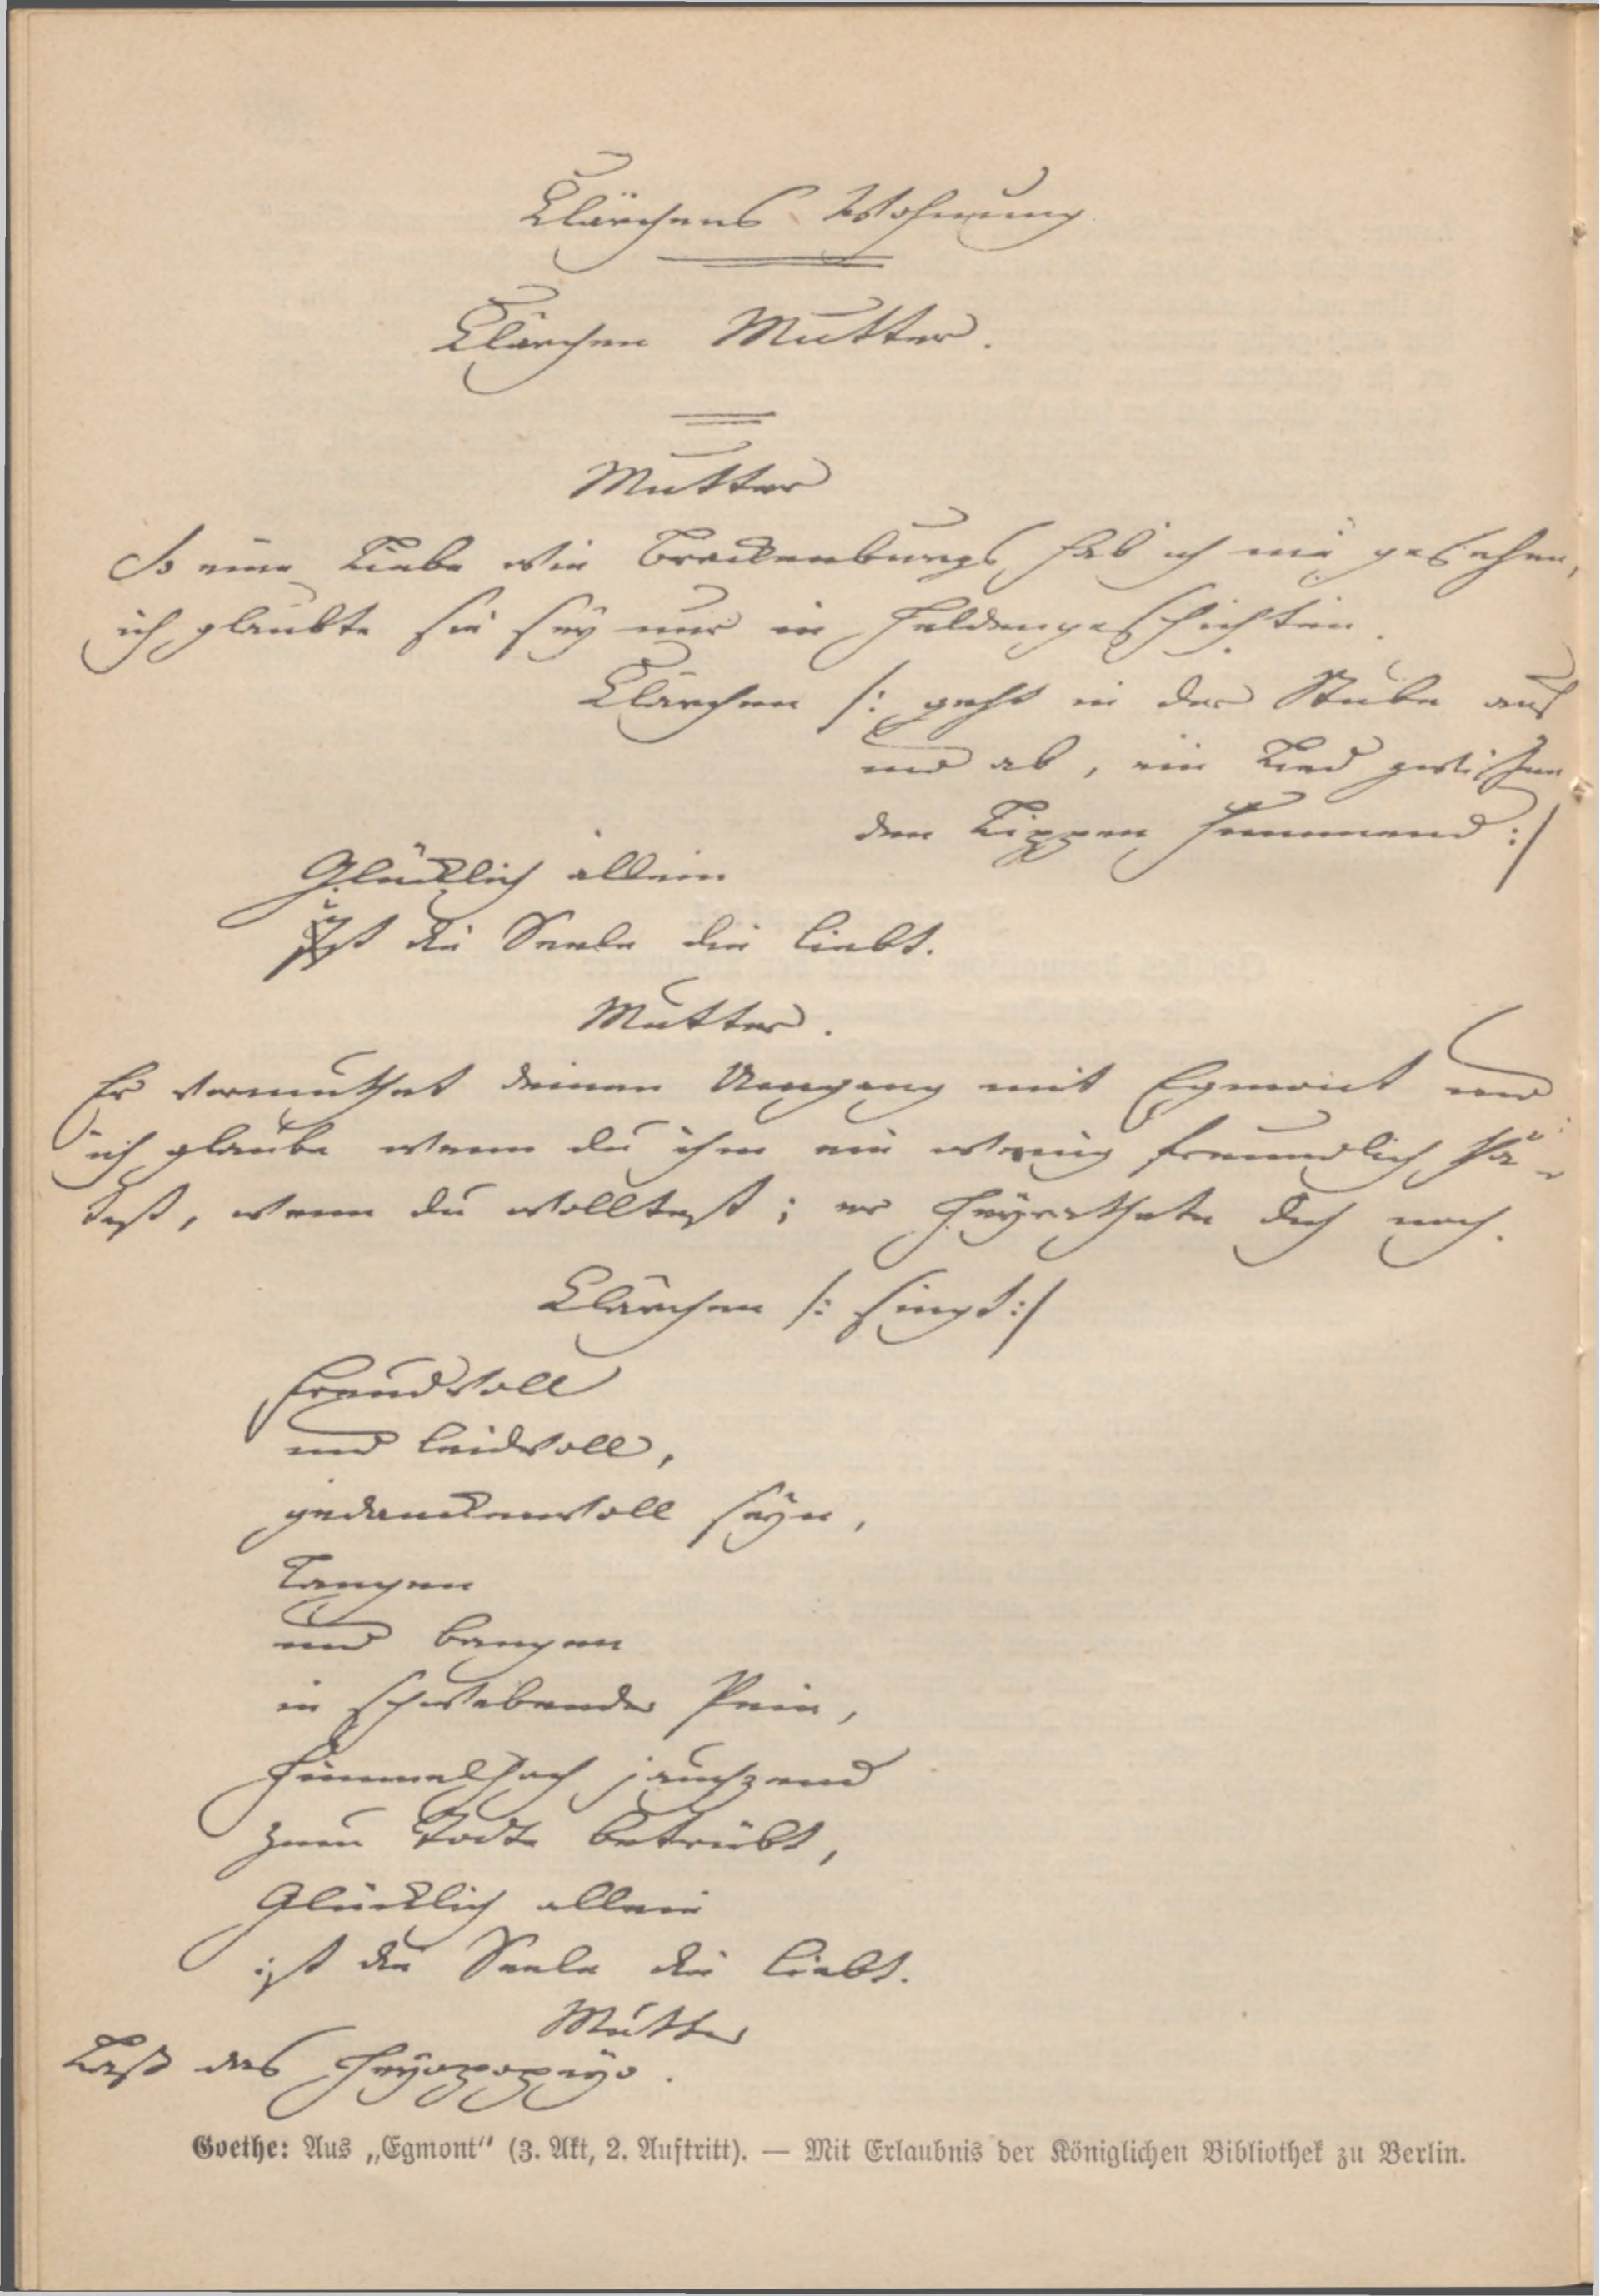 Clärchens Wohnung.
Clärchen Mutter.
Mutter
So eine Liebe wie Brackenburgs hab ich nie gesehen,
ich glaubte sie sey nur in Heldengeschichten.
Clärchen /: geht in der Stube auf
und ab, ein Lied zwischen
den Lippen summend :/
Glücklich allein
Ist die Seele die liebt.
Mutter.
Er vermuthet deinen Umgang mit Egmont und
ich glaube wenn du ihm ein wenig freundlich thä-
test, wenn du wolltest; er heyrathete dich noch.
Clärchen /: singt :/
Freudvoll
und leidvoll,
gedanckenvoll seyn,
Langen
und bangen
in schwebender Pein,
Himmelhoch jauchzend
zum Todte betrübt,
Glücklich allein
ist die Seele die liebt.
Mutter
Laß das Heyopopeyo.
Goethe: Aus „Egmont“ (3. Akt, 2. Auftritt). — Mit Erlaubnis der Königlichen Bibliothek zu Berlin.